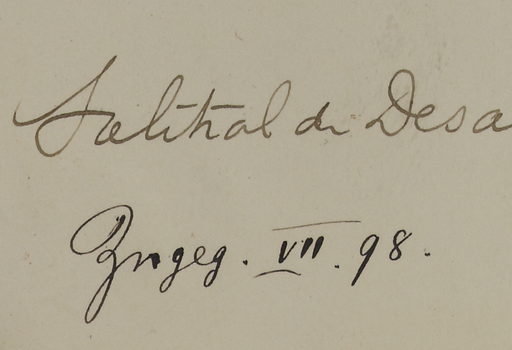 Salitral de Desa
Zugeg. VII. 98.